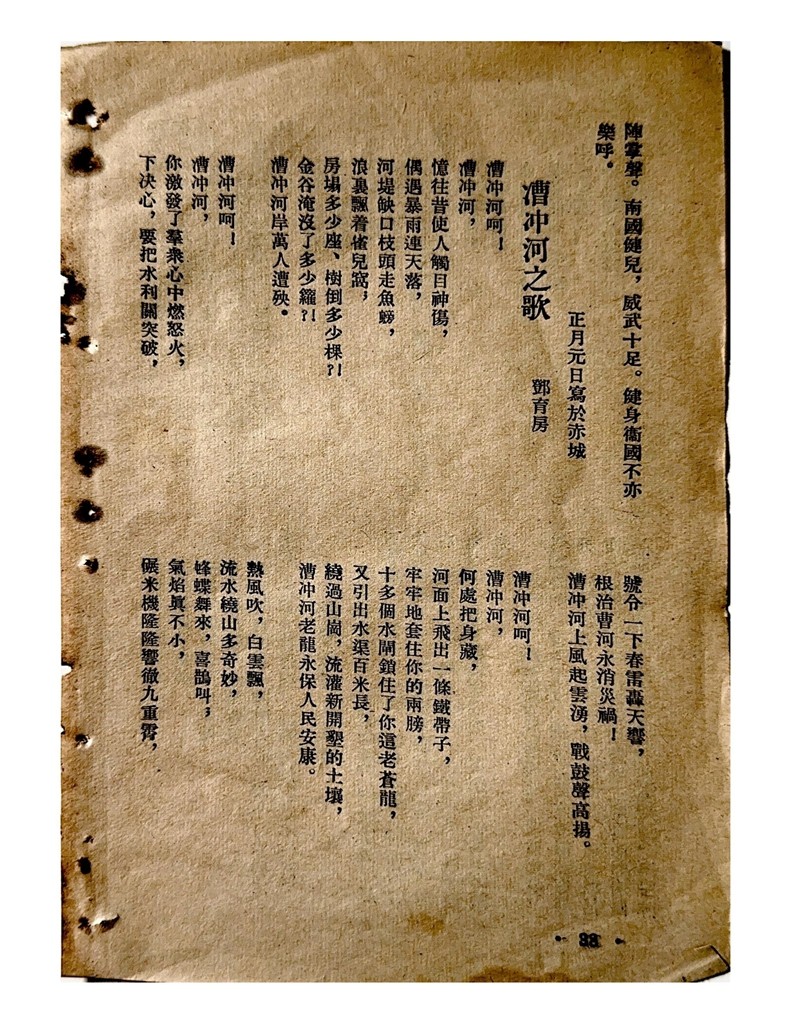 陣掌聲。南國健兒，威武十足。健身衞國不亦
樂呼。
正月元日寫於赤城
漕冲河之歌
鄧育房
漕冲河呵！
漕冲河，
憶往昔使人觸目神傷，
偶遇暴雨連天落，
河堤缺口枝頭走魚螃，
浪裏飄着雀兒窩，
房塌多少座、樹倒多少棵？！
金谷淹沒了多少籮？！
漕冲河岸萬人遭殃。
漕冲河呵！
漕冲河，
你激發了羣衆心中燃怒火，
下决心，要把水利關突破，
號令一下春雷轟天響，
根治曹河永消災禍！
漕冲河上風起雲湧，戰鼓聲高揚。
漕冲河呵！
漕冲河，
何處把身藏，
河面上飛出一條鐵帶子，
牢牢地套住你的兩膀，
十多個水閘鎖住了你這老蒼龍，
又引出水渠百米長，
繞過山崗，流灌新開墾的土壤，
漕冲河老龍永保人民安康。
熱風吹，白雲飄，
流水繞山多奇妙，
蜂蝶舞來，喜鵲叫；
氣焰眞不小，
碾米機隆隆響徹九重霄，
• 33 •